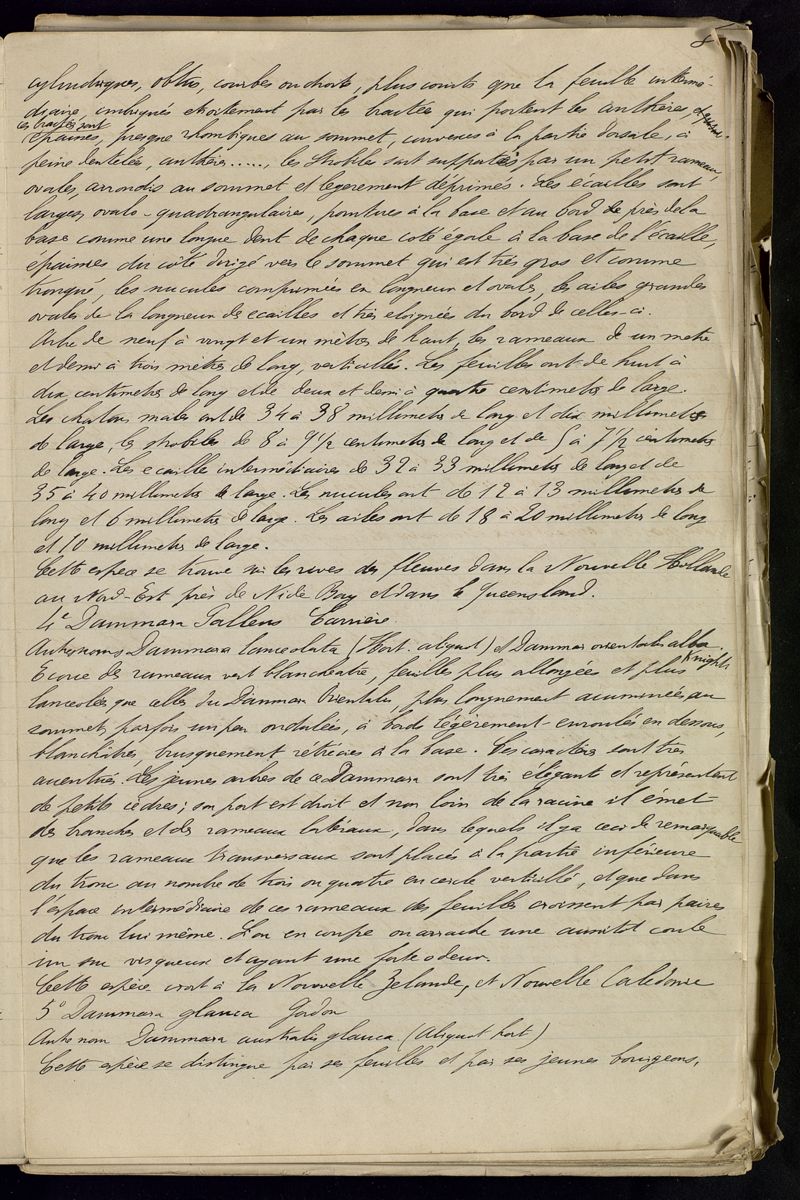 8
cylindriques, obtus, courbes ou droits, plus courts que la feuille intermé-
diaire, imbriqués etroitement par les bractées qui portent les anthères, et
ces bractées sont
épaisses, presque rhombiques au sommet, convexes à la partie dorsale, à
peine dentelées, anthères....., les strobiles sont supportés par un petit rameau,
ovales, arrondis au sommet et legerement déprimés. Les écailles sont
larges, ovalo-quadrangulaires, pointues à la base et au bord de près de la
base comme une longue dent de chaque coté égale à la base de l'écaille,
epaisses du côté dirigé vers le sommet qui est très gros et comme
tronqué, les nucules comprimées en longueur et ovales, les ailes grandes
ovales de la longueur des ecailles et très eloignées du bord de celles-ci.
Arbre de neuf à vingt et un mètres de haut, les rameaux de un metre
et demi à trois mètres de long, verticillés. Les feuilles ont de huit à
dix centimetres de long et de deux et demi à quatre centimetres de large.
Les chatons males ont de 34 à 38 millimetres de long et dix millimetres
de large, les strobiles de 8 à 9 1/2 centimetres de long et de 5 à 7 1/2 centimetres
de large. Les ecailles intermédiaires de 32 à 33 millimetres de long et de
35 à 40 millimetres de large. Les nucules ont de 12 à 13 millimetres de
long et 6 millimetres de large. Les ailes ont de 18 à 20 millimetres de long
et 10 millimetres de large.
Cette espèce se trouve sur les rives des fleuves dans la Nouvelle Hollande
au Nord-Est près de Wide Bay et dans le Queensland.
4º Dammara Pallens Carrière
Autres noms Dammara lanceolata (Hort. aliquot) et Dammara orientalis alba
Knight
Ecorce des rameaux vert blanchâtre, feuilles plus allongées et plus
lanceolées que celles du Dammara Orientalis, plus longuement acuminées au
sommet, parfois un peu ondulées, à bords légèrement enroulés en dessous,
blanchâtres, brusquement rétrécies à la base. Ces caractères sont très
accentués. Les jeunes arbres de ce Dammara sont très élégants et représentent
de petits cèdres; son port est droit et non loin de la racine il émet
des branches et des rameaux latéraux, dans lequels il y a ceci de remarquable
que les rameaux transversaux sont placés à la partie inférieure
du tronc au nombre de trois ou quatre en cercle verticillé, et que dans
l'espace intermédiaire de ces rameaux des feuilles croissent par paires
du tronc lui même. L'on en coupe ou arrache une aussitôt coule
un suc visqueux et ayant une forte odeur.
Cette espèce croit à la Nouvelle Zelande, et Nouvelle Caledonie
5º Dammara glauca Gordon
Autre nom Dammara australis glauca (Aliquot hort)
Cette espèce se distingue par ses feuilles et par ses jeunes bourgeons,